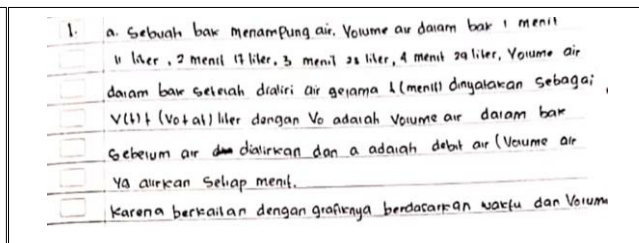 1. a. Sebuah bak menampung air. Volume air dalam bak 1 menit
11 liter, 2 menit 17 liter, 3 menit 23 liter, 4 menit 29 liter, Volume air
dalam bak setelah dialiri air selama t (menit) dinyatakan sebagai
V(t) = (Vo + at) liter dengan Vo adalah Volume air dalam bak
Sebelum air dialirkan dan a adalah debit air (Volume air
yg alirkan setiap menit.
Karena berkaitan dengan grafiknya berdasarkan waktu dan Volume